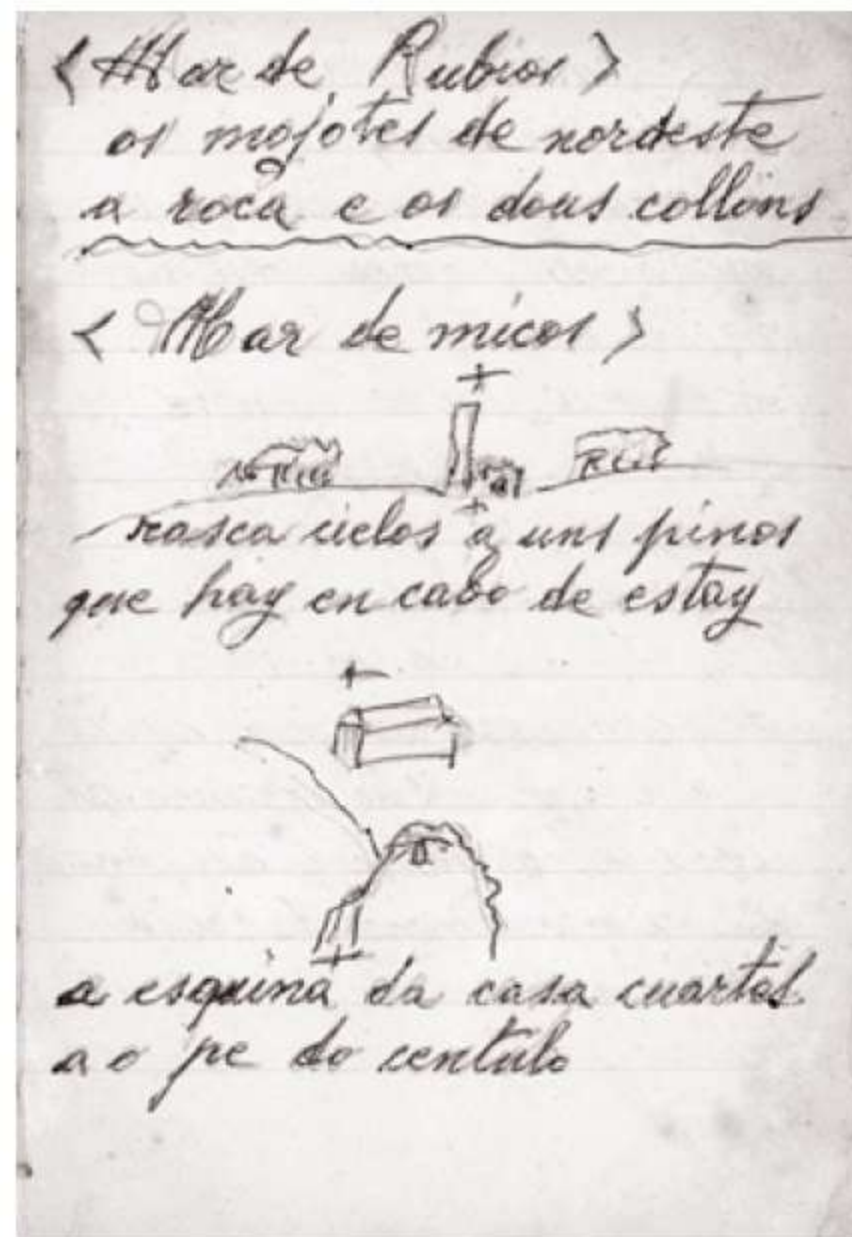 <Mar de Rubios>
os mojotes de nordeste
a roca e os dous collóns
<Mar de micos>
rasca cielos a uns pinos
que hay en cabo de estay
a esquina da casa cuartel
ao pe do centulo